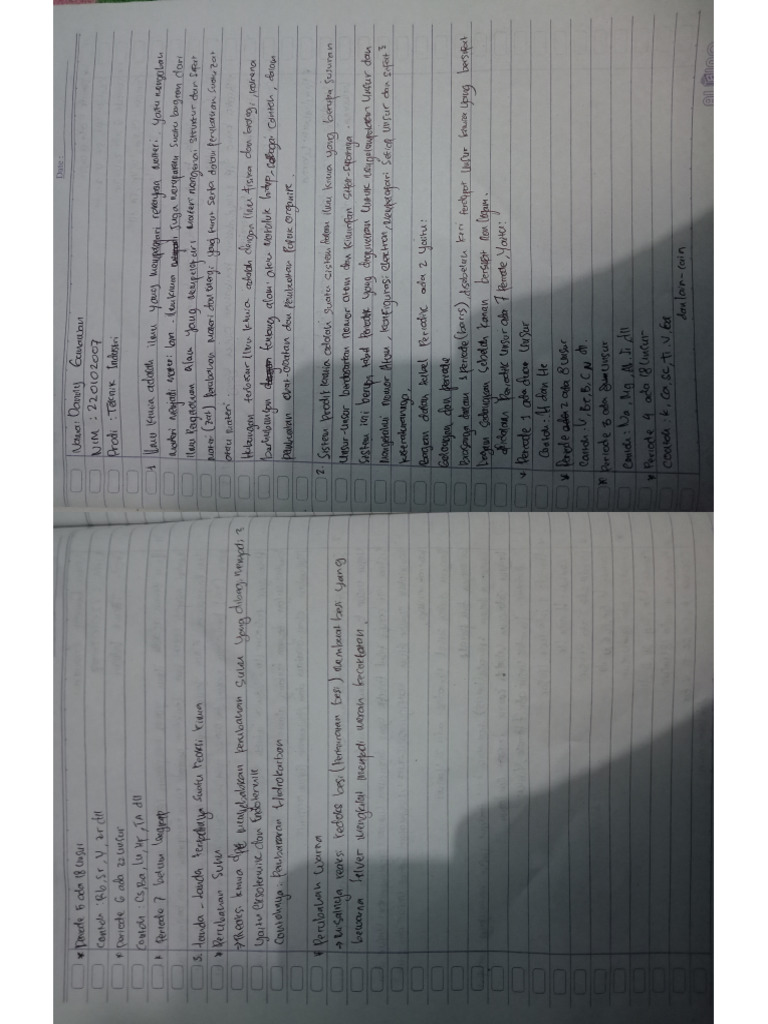 Date:
Nama: Danny Gunawan
NIM : 220102007
Prodi : Teknik Industri
1. Ilmu kimia adalah ilmu yang mempelajari rekayasa materi yaitu mengubah
materi menjadi materi lain. Ilmu kimia juga merupakan suatu bagian dari
Ilmu Pengetahuan alam yang mempelajari materi mengenai struktur dan sifat
materi (zat) Perubahan materi dan energi yang turun serta dalam perubahan suatu zat
atau materi
Hubungan terbesar ilmu kimia adalah dengan ilmu fisika dan biologi, karena
berhubungan dengan tentang alam atau makhluk hidup sebagai contoh, dalam
pembuatan obat-obatan dan pembuatan Pupuk organik.
2. Sistem Preodik kimia adalah suatu sistem dalam ilmu kimia yang berupa susunan
Unsur-unsur berdasarkan nomor atom dan kemiripan sifat-sifatnya.
Sistem ini berupa tabel Preodik yang digunakan untuk mengelompokkan Unsur dan
Mengetahui nomor Atom, konfigurasi electron, mempelajari setiap unsur dan sifat²
keteraturannya.
Bagian dalam tabel Periodik ada 2 Yaitu:
Golongan dan periode
dalam 1 Periode (baris), disebelah kiri terdapat unsur kimia yang bersifat
Logam Sedangkan Sebelah kanan bersifat non logam.
didalam Periodik Unsur ada 7 Periode, Yaitu:
* Periode 1 ada dua Unsur
Contoh : H dan He
* Periode 2 ada 8 Unsur
Contoh : Be, B, C, N dll.
* Periode 3 ada 8 Unsur
Contoh : Na, Mg, Al, Si dll
* Periode 4 ada 18 Unsur
Contoh : K, Ca, Sc, Ti, V,
dan lain-lain
* Periode 5 ada 18 Unsur
Contoh : Rb, Sr, Y, Zr dll
* Periode 6 ada 32 Unsur
Contoh : Cs, Ba, Lu, Hf, Ta dll
* Periode 7 belum lengkap
3. tanda-tanda terjadinya Suatu reaksi kimia
* Perubahan Suhu
→ Reaksi kimia dpt menyebabkan perubahan suhu yang dibagi menjadi 2
Yaitu Eksotermik dan Endotermik
Contohnya : Pembakaran Hidrokarbon
* Perubahan Warna
→ Misalnya reaksi redoks besi (Perkaratan besi) membuat besi yang
berwarna Silver mengkilat menjadi merah kecoklatan.